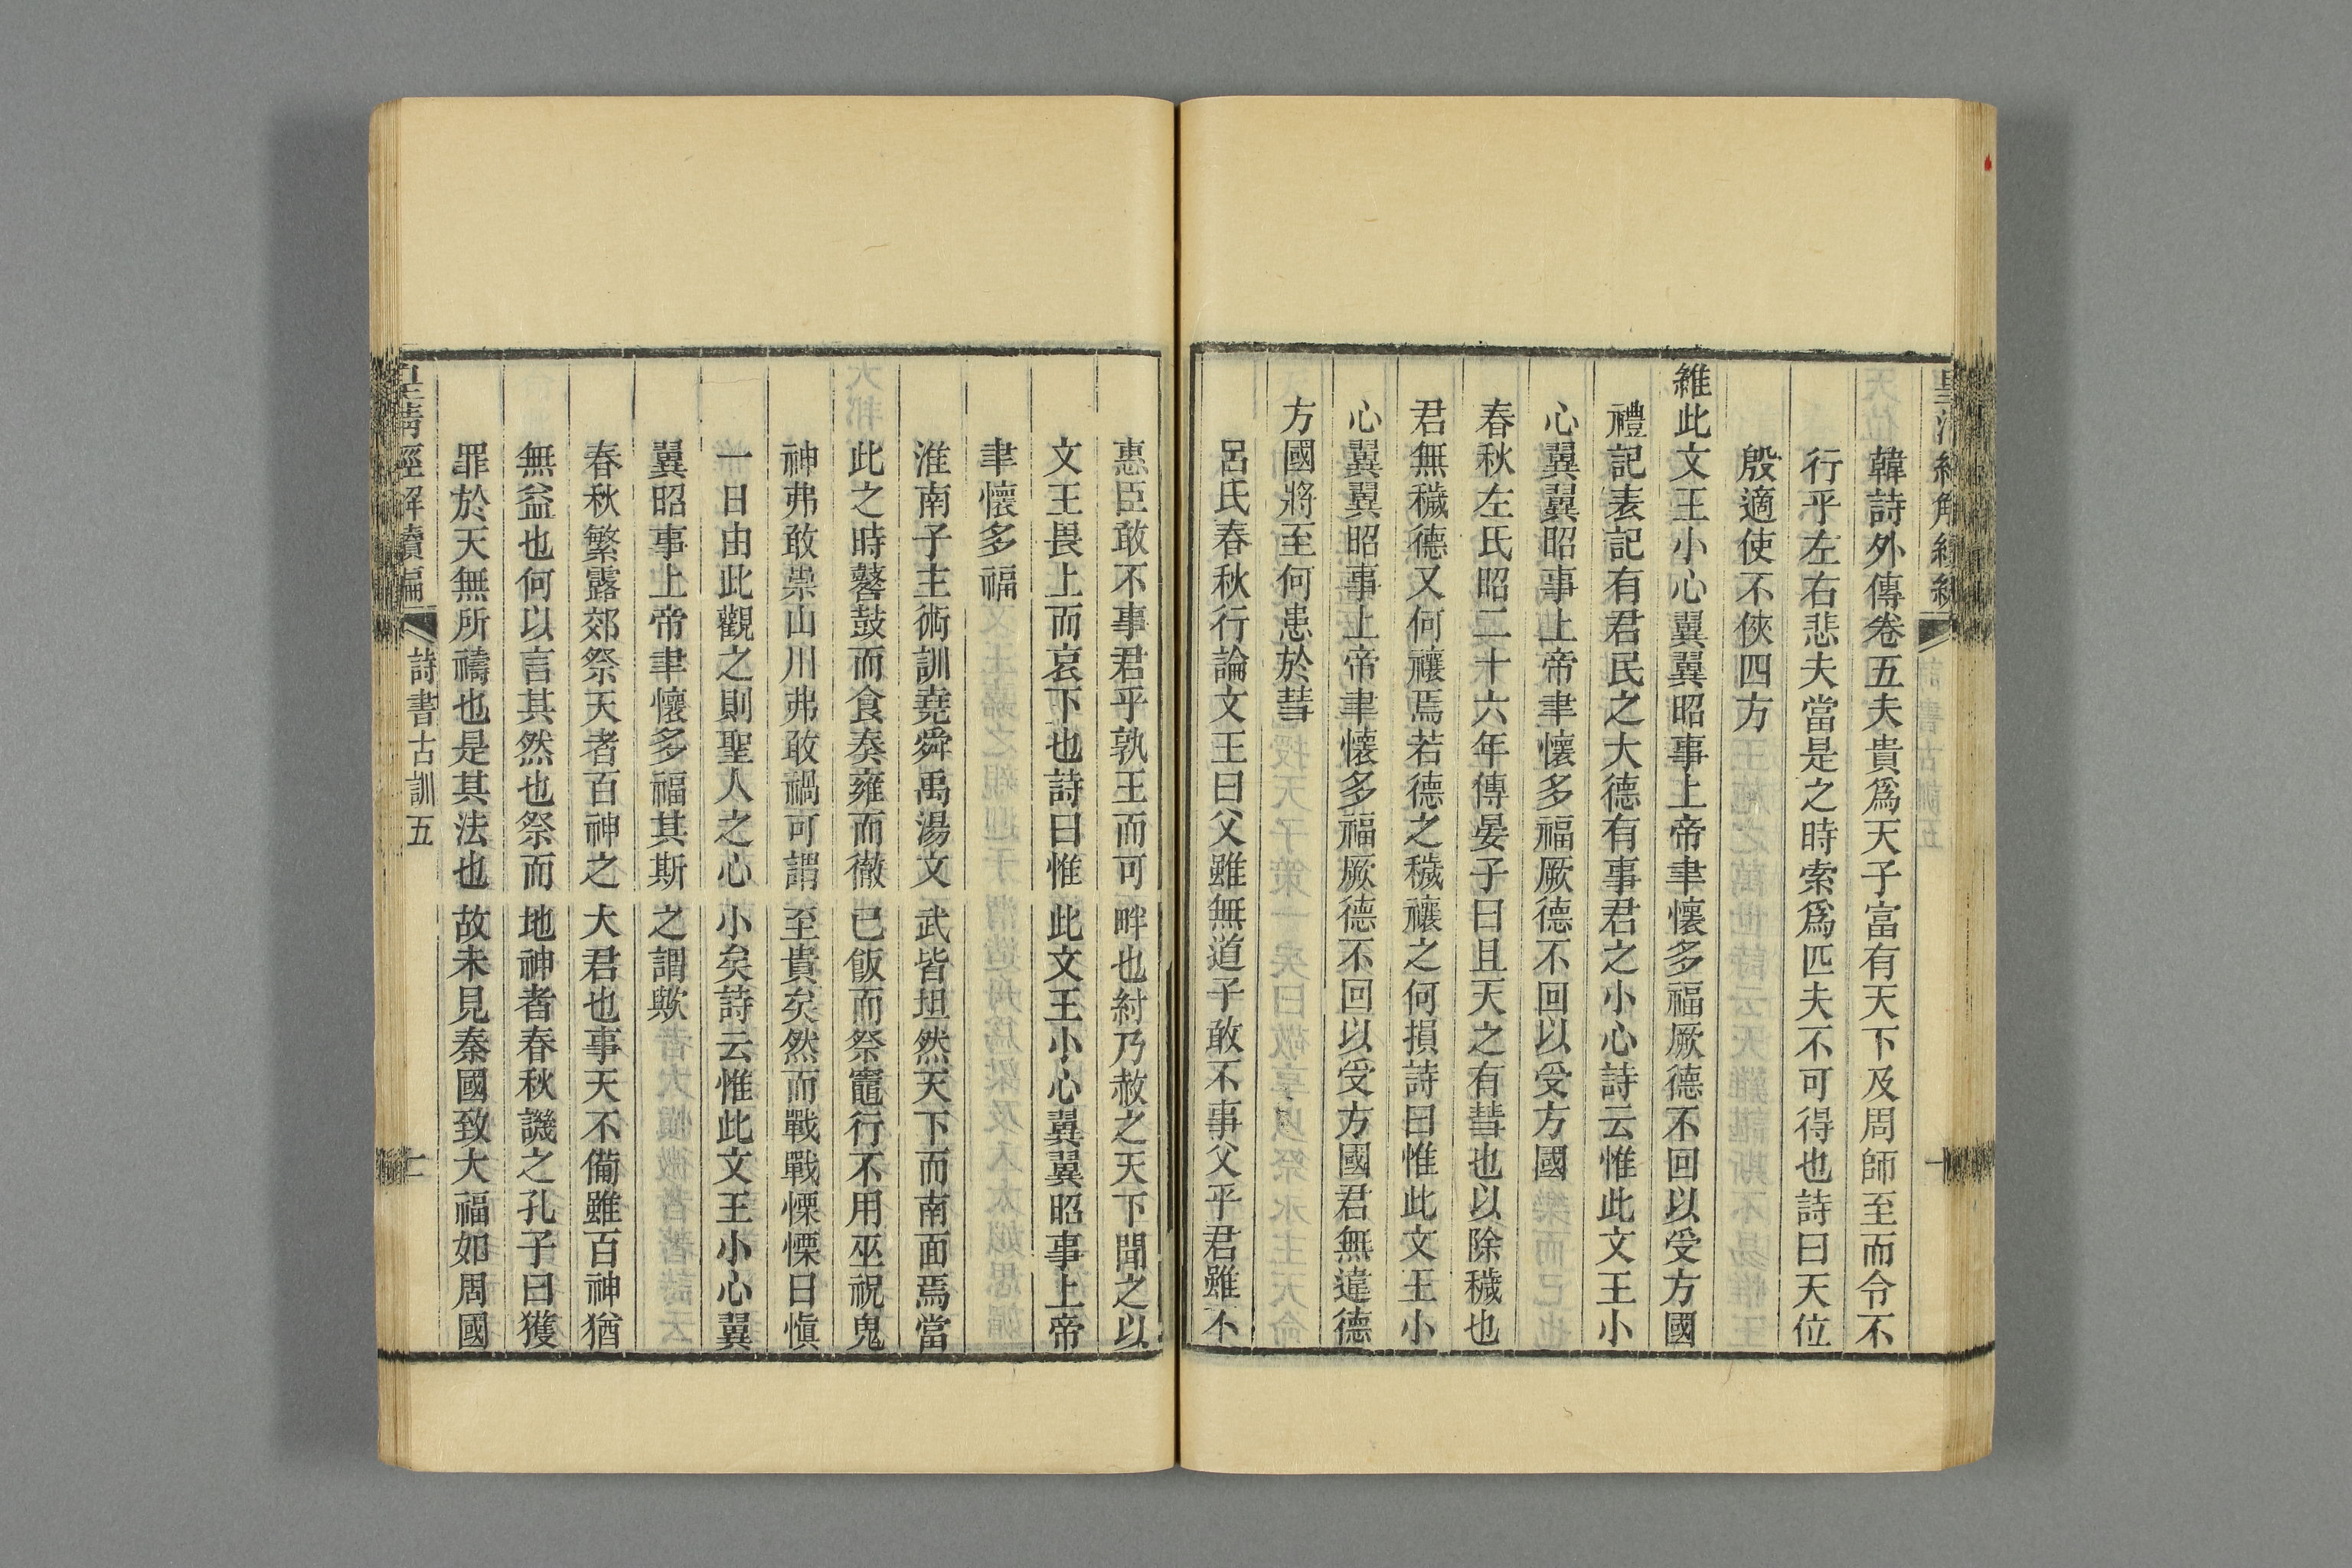 韓詩外傳卷五夫貴爲天子富有天下及周師至而令不
行乎左右悲夫當是之時索爲匹夫不可得也詩曰天位
殷適使不俠四方
維此文王小心翼翼昭事上帝聿懷多福厥德不回以受方國
禮記表記有君民之大德有事君之小心詩云惟此文王小
心翼翼昭事上帝聿懷多福厥德不回以受方國
春秋左氏昭二十六年傳晏子曰且天之有彗也以除穢也
君無穢德又何禳焉若德之穢禳之何損詩曰惟此文王小
心翼翼昭事上帝聿懷多福厥德不回以受方國君無違德
方國將至何患於彗
呂氏春秋行論文王曰父雖無道子敢不事父乎君雖不
惠臣敢不事君乎孰王而可畔也紂乃赦之天下聞之以
文王畏上而哀下也詩曰惟此文王小心翼翼昭事上帝
聿懷多福
淮南子主術訓堯舜禹湯文武皆坦然天下而南面焉當
此之時鼛鼓而食奏雍而徹已飯而祭竈行不用巫祝鬼
神弗敢祟山川弗敢禍可謂至貴矣然而戰戰慄慄日愼
一日由此觀之則聖人之心小矣詩云惟此文王小心翼
翼昭事上帝聿懷多福其斯之謂歟
春秋繁露郊祭天者百神之大君也事天不備雖百神猶
無益也何以言其然也祭而地神者春秋譏之孔子曰獲
罪於天無所禱也是其法也故未見秦國致大福如周國
皇清經解續編
詩書古訓五